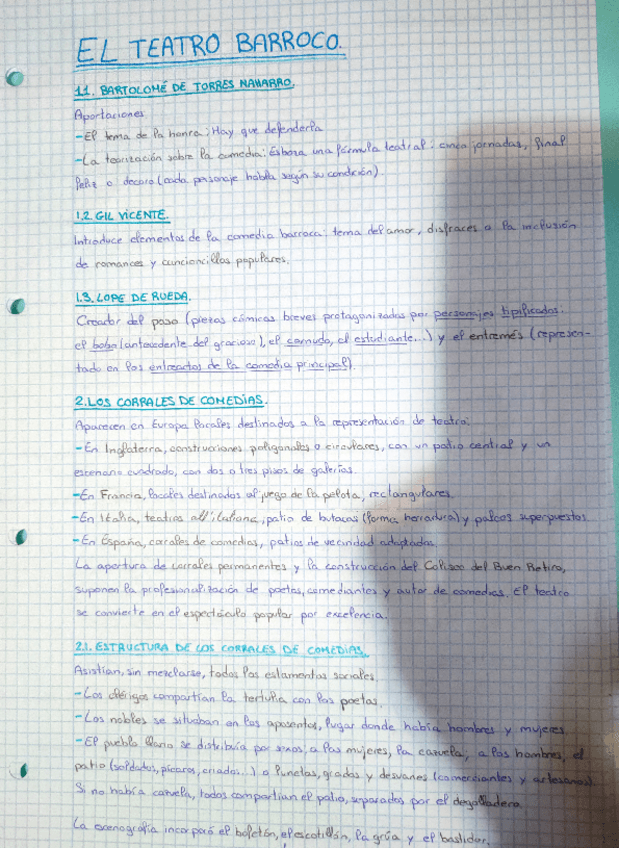 EL TEATRO BARROCO.
1.1. BARTOLOMÉ DE TORRES NAHARRO.
Aportaciones
-El tema de la honra: Hay que defenderla
-La teorización sobre la comedia: Esboza una fórmula teatral: cinco jornadas, final
feliz o decoro (cada personaje habla según su condición).
1.2. GIL VICENTE.
Introduce elementos de la comedia barroca: tema del amor, disfraces o la inclusión
de romances y cancioncillas populares.
1.3. LOPE DE RUEDA.
Creador del paso (piezas cómicas breves protagonizadas por personajes tipificados:
el bobo (antecedente del gracioso), el cornudo, el estudiante...) y el entremés (represen-
tado en los entreactos de la comedia principal).
2. LOS CORRALES DE COMEDIAS.
Aparecen en Europa locales destinados a la representación de teatro:
-En Inglaterra, construcciones poligonales o circulares, con un patio central y un
escenario cuadrado, con dos o tres pisos de galerías.
-En Francia, locales destinados al juego de la pelota, rectangulares.
-En Italia, teatros all'italiana, patio de butacas (forma herradura) y palcos superpuestos
-En España, corrales de comedias, patios de vecindad adaptados.
La apertura de corrales permanentes y la construcción del Coliseo del Buen Retiro,
suponen la profesionalización de poetas, comediantes y autor de comedias. El teatro
se convierte en el espectáculo popular por excelencia.
2.1. ESTRUCTURA DE LOS CORRALES DE COMEDIAS.
Asistían, sin mezclarse, todos los estamentos sociales.
-Los clérigos compartían la tertulia con los poetas.
-Los nobles se situaban en los aposentos, lugar donde había hombres y mujeres.
-El pueblo llano se distribuía por sexos, a las mujeres, la cazuela; a los hombres, el
patio (soldados, pícaros, criados...) o lunetas, gradas y desvanes (comerciantes y artesanos).
Si no había cazuela, todos compartían el patio, separados por el degolladero.
La escenografía incorporó el bofetón, el escotillón, la grúa y el bastidor.